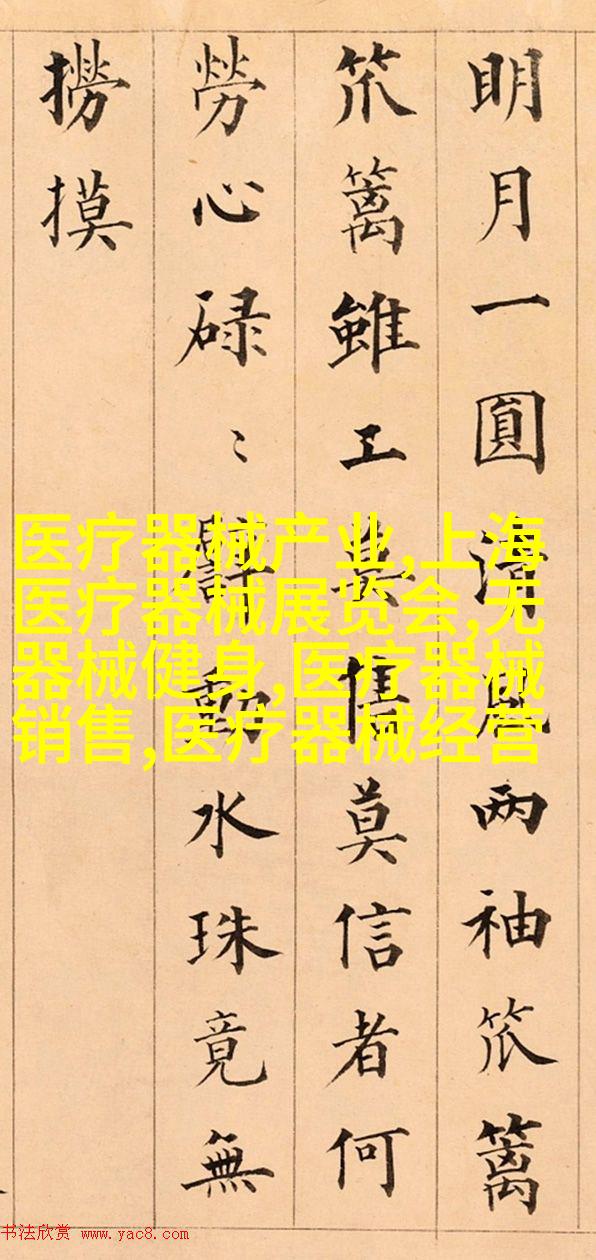 明月一圓清風两袖笊篱
笊篱雖工莫信者何
勞心碌〻動水珠竟無
撈摸
医疗器械产业,上海
医疗器械展览会,无
器械健身,医疗器械
销售,医疗器械经营
书法欣赏 www.yac8.com